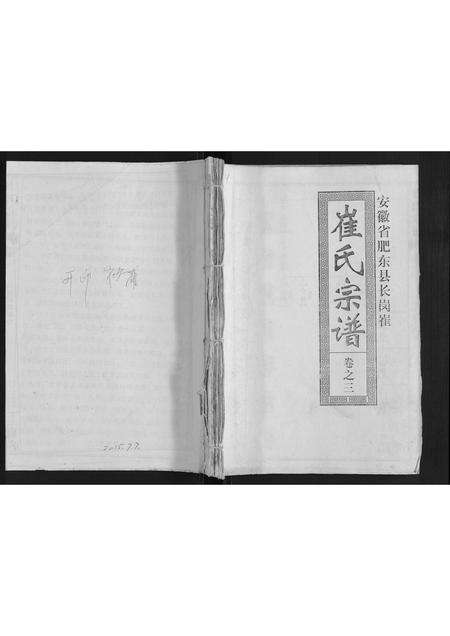 安徽省肥东县长岗崔
崔氏宗谱
卷之三
2015.7.7.